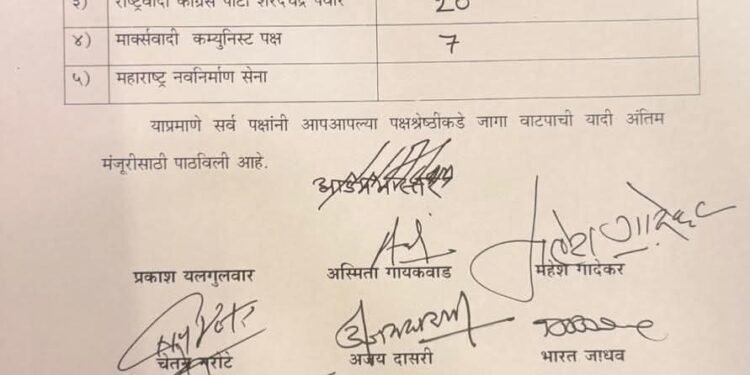 ३) राष्ट्रवादी काँग्रेस पार्टी शरदचंद्र पवार 20
४) मार्क्सवादी कम्युनिस्ट पक्ष 7
५) महाराष्ट्र नवनिर्माण सेना
याप्रमाणे सर्व पक्षांनी आपआपल्या पक्षश्रेष्ठींकडे जागा वाटपाची यादी अंतिम
मंजूरीसाठी पाठविली आहे.
प्रकाश यलगुलवार अस्मिता गायकवाड महेश गादेकर
चेतन नरोटे अजय दासरी भारत जाधव